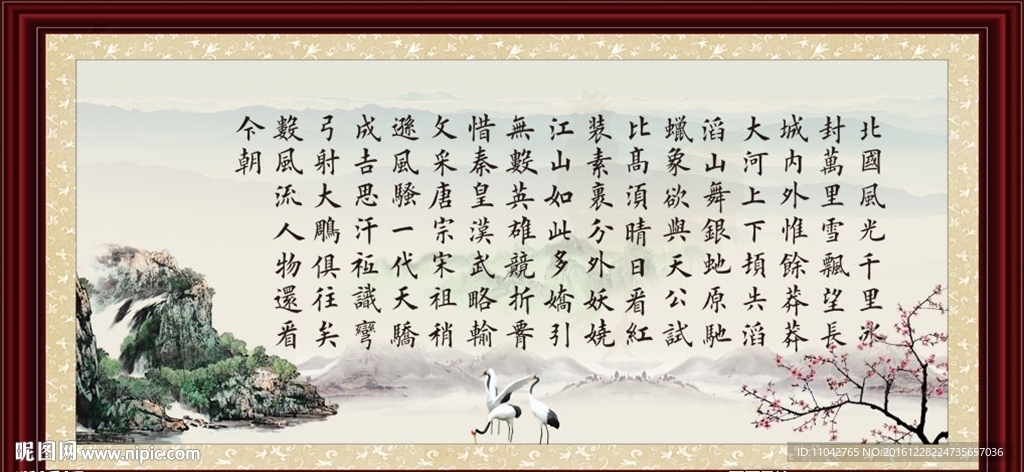 北國風光千里冰
封萬里雪飄望長
城內外惟餘莽莽
大河上下頓失滔
滔山舞銀虵原馳
蠟象欲與天公試
比髙須晴日看紅
裝素裹分外妖嬈
江山如此多嬌引
無數英雄競折腰
惜秦皇漢武略輸
文采唐宗宋祖稍
遜風騷一代天驕
成吉思汗衹識彎
弓射大鵰俱往矣
數風流人物還看
今朝
昵图网 www.nipic.com
ID:11042765 NO:20161228224735657036